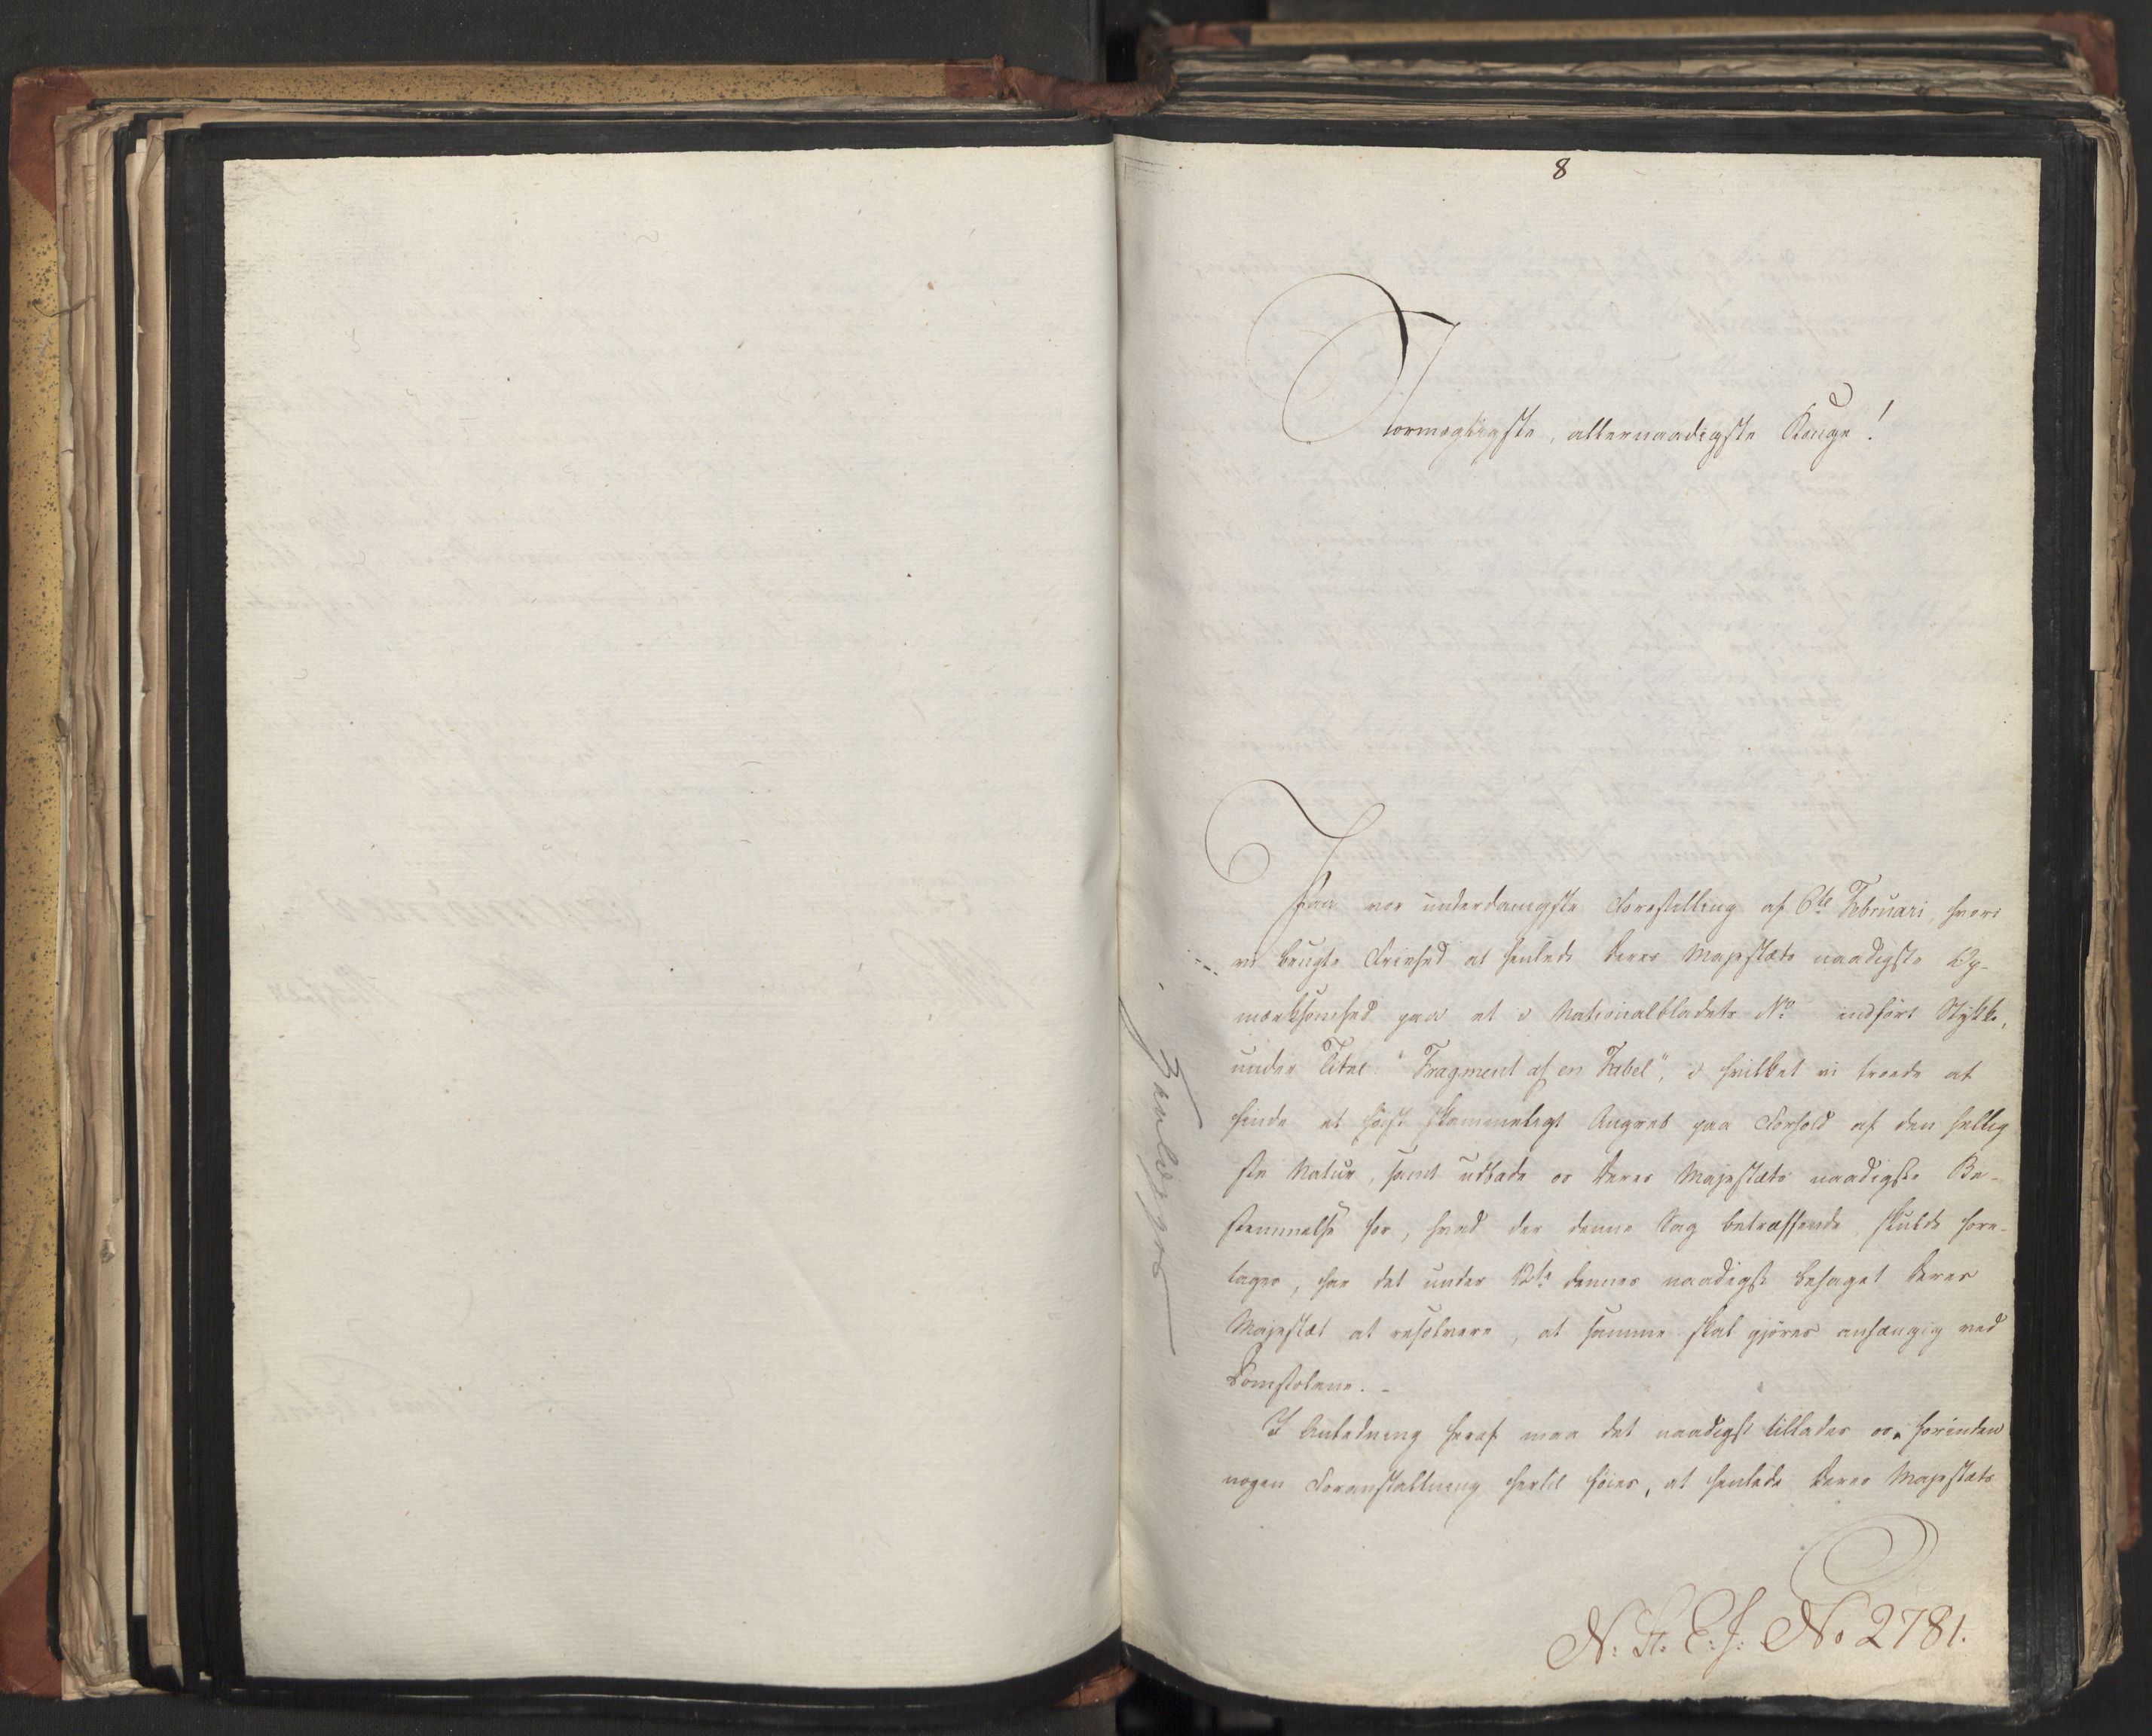 8
Stormægtigste, allernaadigste Konge!
Paa vor underdanigste Forestilling af 6te Februari, hvori
vi brugte Friehed at henlede Deres Majestæts naadigste Op-
mærksomhed paa et i Nationalbladets No indført Stykke,
under Titel "Fragment af en Fabel", i hvilket vi troede at
finde et høist skammeligt Angreb paa Forhold af den hellig
ste Natur, samt udbade os Deres Majestæts naadigste Be-
stemmelse for, hvad der denne Sag betræffende skulde fore-
tages, har det under 12te dennes naadigst behaget Deres
Majestæt at resolvere, at samme skal gjøres anhængig ved
Domstolene. -
I Anledning heraf maa det naadigst tillades os, forinden
nogen Foranstaltning hertil føies, at henlede Deres Majestæts
N: St: E: J: No 2781.